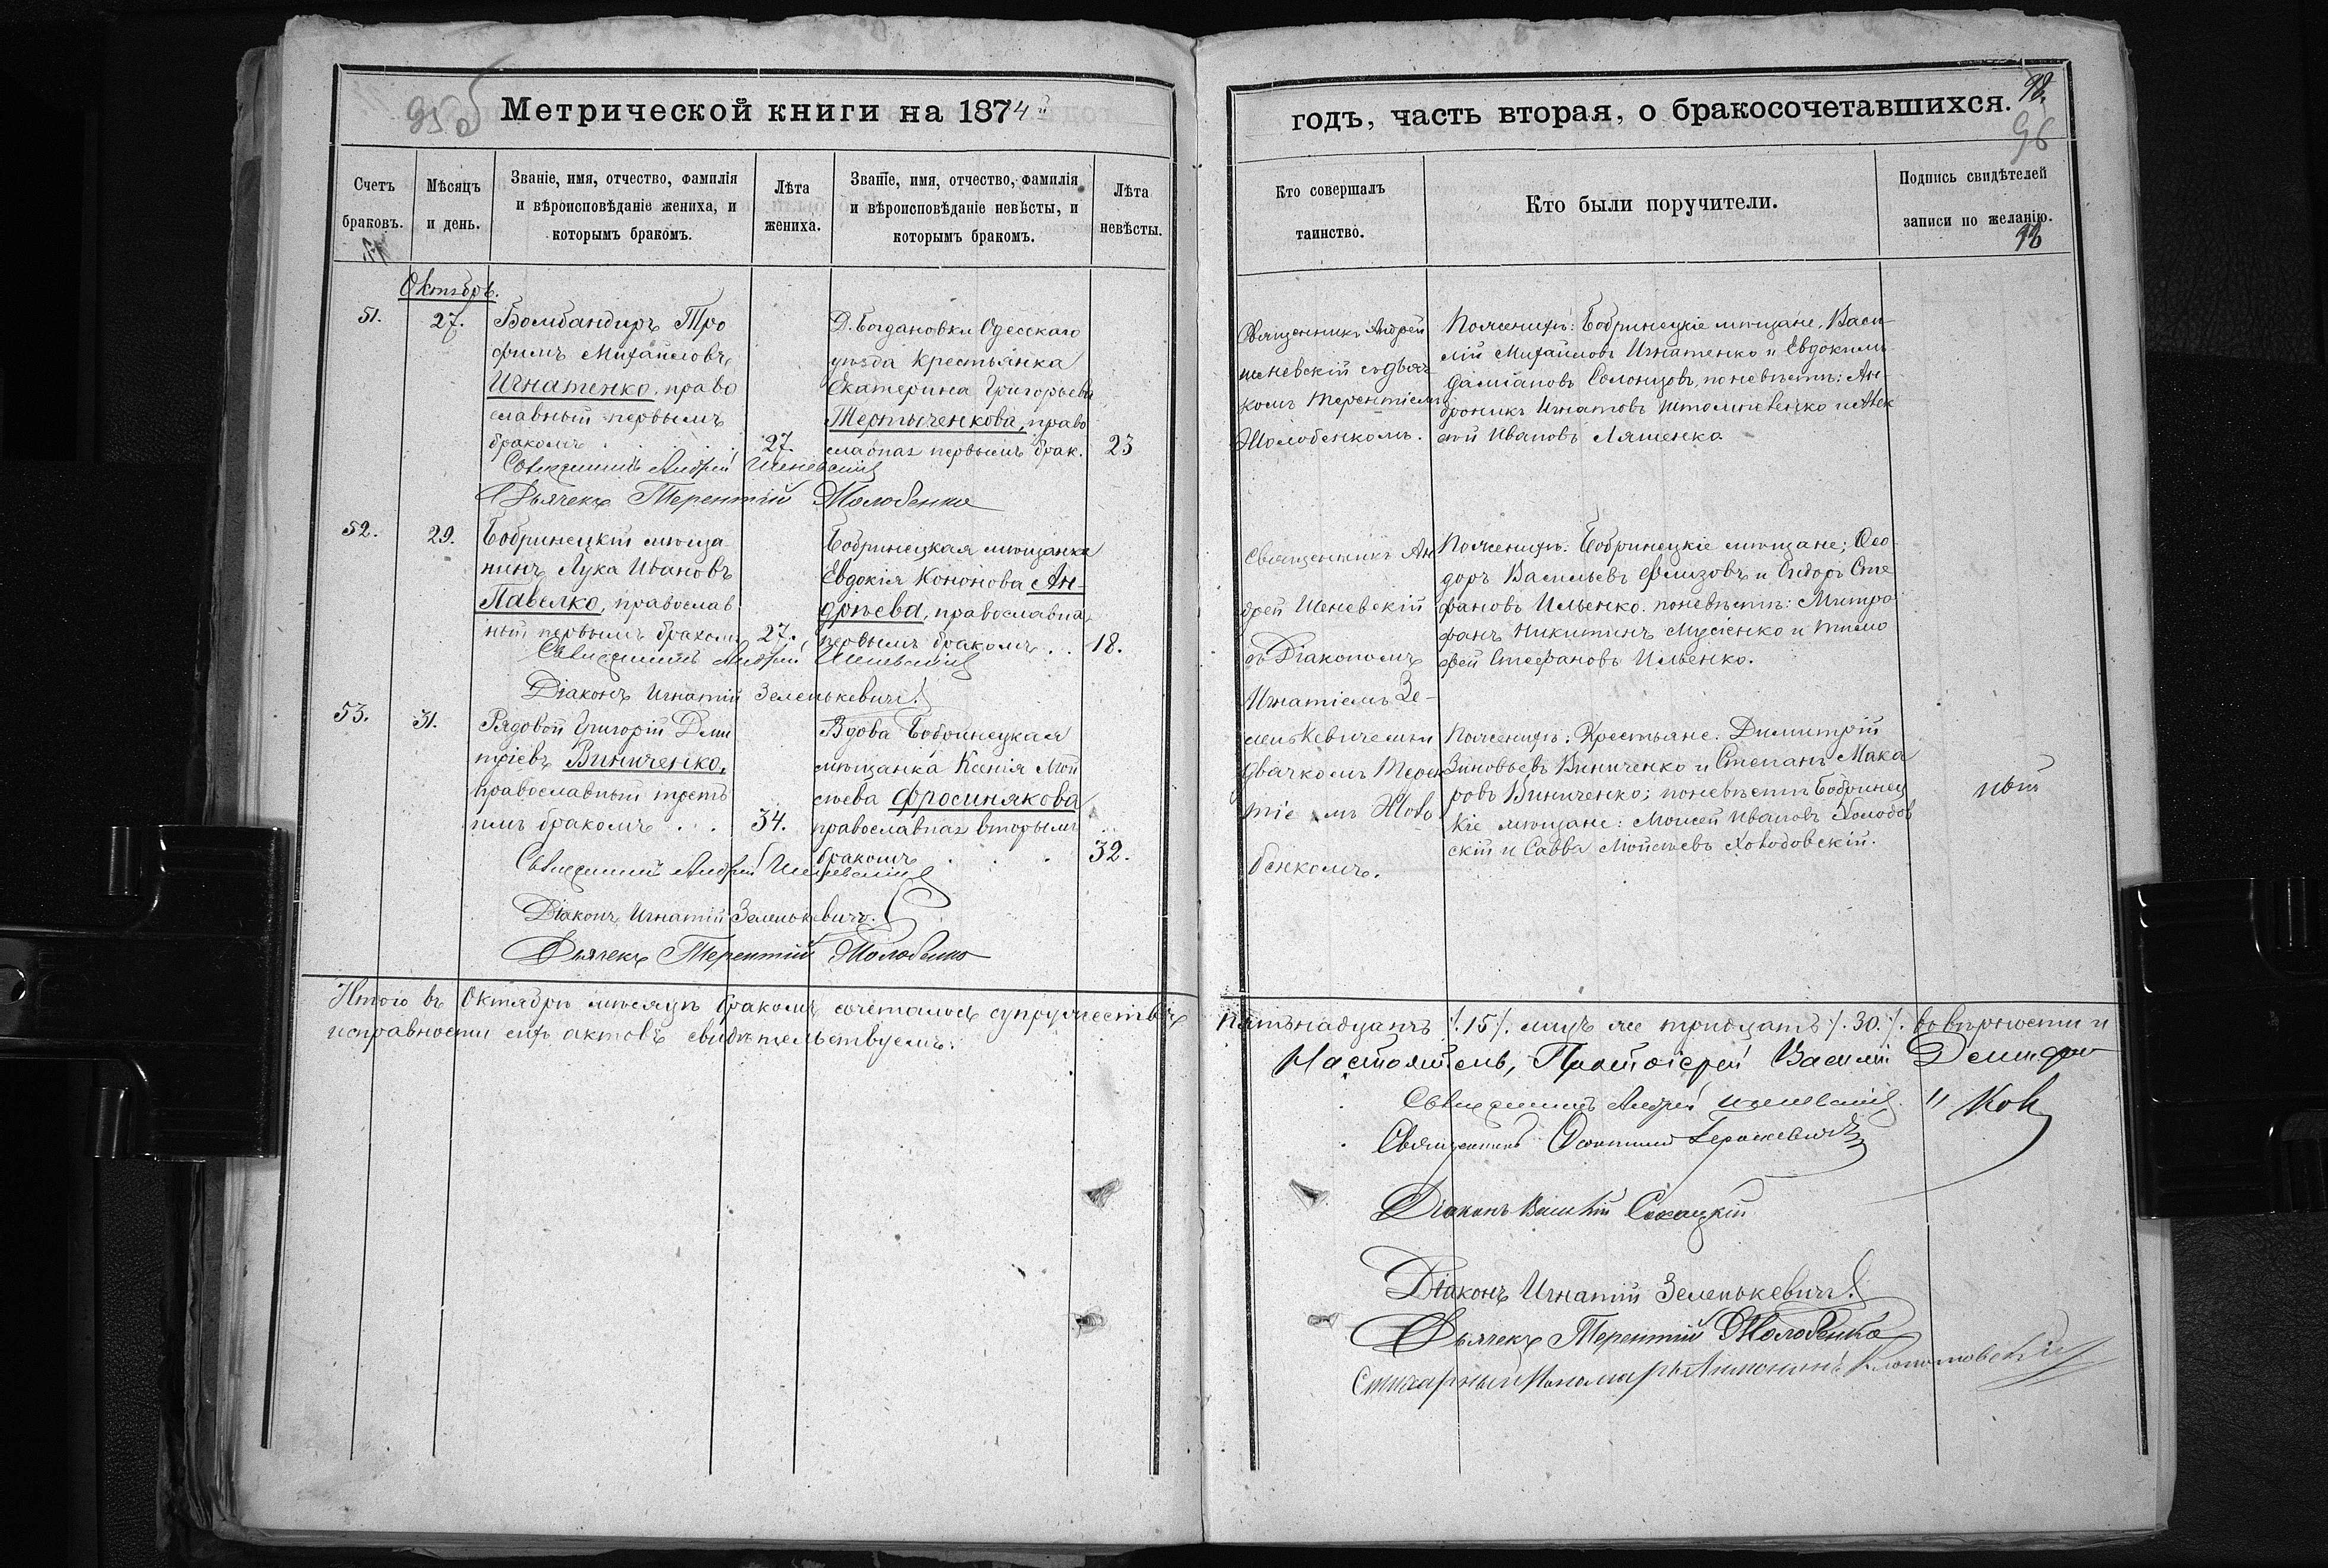 95 б
Метрической книги на 1874й
Счетъ браковъ.
Мѣсяцъ и день.
Званіе, имя, отчество, фамилія и вѣроисповѣданіе жениха, и которымъ бракомъ.
Лѣта жениха.
Званіе, имя, отчество, фамилія и вѣроисповѣданіе невѣсты, и которымъ бракомъ.
Лѣта невѣсты.
Октябрь.
51.
27.
Бомбандиръ Тро
фимъ Михайловъ
Игнатенко, право
славный первымъ
бракомъ . . .
27.
Д. Богдановки Одесскаго
уѣзда крестьянка
Екатерина Григорьева
Тертыченкова, право
славная первымъ брак.
23
Священникъ Андрей Шеневскій
Дьячекъ Терентій Жолобенко
52.
29.
Бобринецкій мѣща
нинъ Лука Ивановъ
Павелко, православ
ный первымъ бракомъ
27.
Бобринецкая мѣщанка
Евдокія Кононова Ан-
дрѣева, православная
первымъ бракомъ . .
18.
Священникъ Андрей Шеневскій
Діаконъ Игнатій Зеленькевичъ.
53.
31.
Рядовой Григорій Дми
тріевъ Виниченко,
православный треть
имъ бракомъ . . .
34.
Вдова Бобринецкая
мѣщанка Ксенія Мой
сеева Фросинякова
православная вторымъ
бракомъ . . .
32.
Священникъ Андрей Шеневскій
Діаконъ Игнатій Зеленькевичъ.
Дьячекъ Терентій Жолобенко
Итого въ Октябрѣ мѣсяцѣ бракомъ сочеталось супружествъ
исправности сихъ актовъ свидѣтельствуемъ:
годъ, часть вторая, о бракосочетавшихся.
98.
96
Кто совершалъ таинство.
Кто были поручители.
Подпись свидѣтелей записи по желанію.
Священникъ Андрей
Шеневскій съ дьяч
комъ Терентіемъ
Жолобенкомъ.
По женихѣ: Бобринецкіе мѣщане, Васи-
лій Михайловъ Игнатенко и Евдокимъ
Даміановъ Солонцовъ, по невѣстѣ: Ан-
дроникъ Игнатовъ и Алек
сѣй Ивановъ Ляшенко.
Священникъ Ан
дрей Шеневскій
съ Діакономъ
Игнатіемъ Зе-
ленькевичемъ и
дьячкомъ Терен
тіемъ Жоло
бенкомъ.
По женихѣ: Бобринецкіе мѣщане; Ѳео-
доръ Васильевъ Флизовъ и Сидоръ Сте
фановъ Ильенко. по невѣстѣ: Митро
фанъ Никитинъ Мусіенко и Тимо
фей Стефановъ Ильенко.
По женихѣ: Крестьяне: Димитрій
Зиновьевъ Виниченко и Степанъ Мака
ровъ Виниченко; по невѣстѣ Бобринец
кіе мѣщане: Моисей Ивановъ Холодов
скій и Савва Мойсѣевъ Холодовскій.
ный
Пятьнадцать /.15/. лицъ же тридцать /.30./. въ вѣрности и
Настоятель, Протоіерей Василій Демидов
Священникъ Андрей Шеневскій " ков
Священникъ
Діаконъ Василій
Діаконъ Игнатій Зеленькевичъ.
Дьячекъ Терентій Жолобенко
Стихарный Пономарь Антонинъ